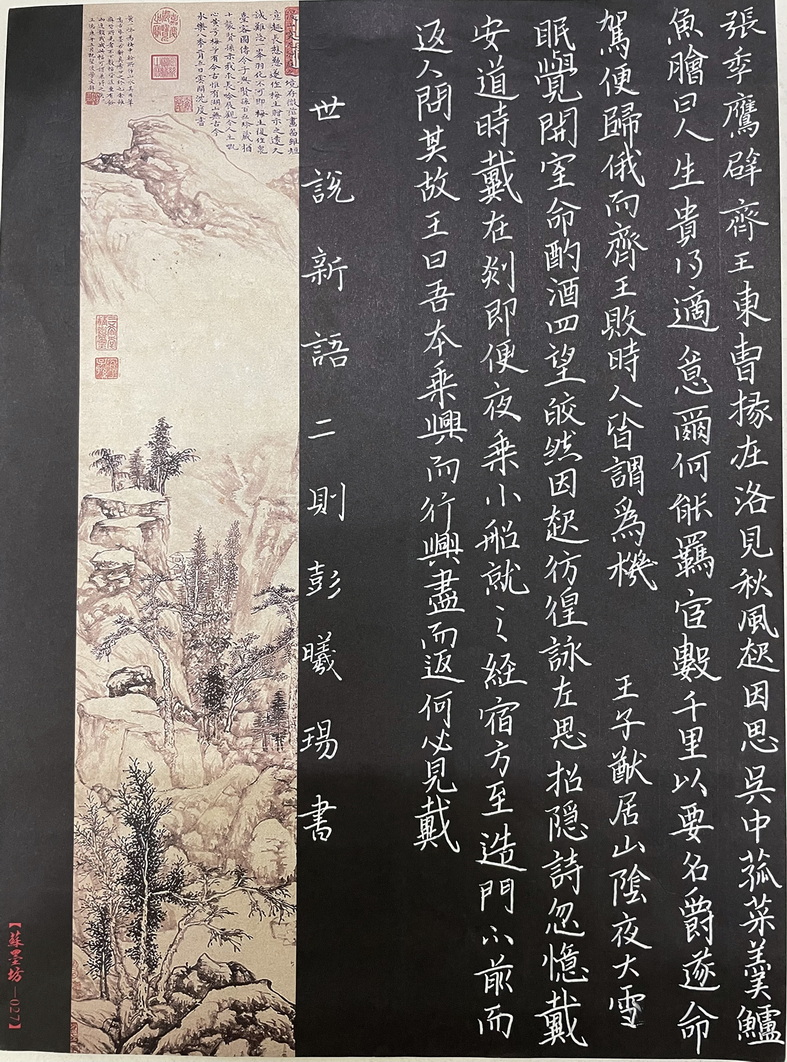 張季鷹辟齊王東曹掾在洛見秋風起因思吳中菰菜羹鱸
魚膾曰人生貴得適意爾何能羈宦數千里以要名爵遂命
駕便歸俄而齊王敗時人皆謂爲機 王子猷居山陰夜大雪
眠覺開室命酌酒四望皎然因起彷徨詠左思招隱詩忽憶戴
安道時戴在剡即便夜乗小船就之經宿方至造門不前而
返人問其故王曰吾本乗興而行興盡而返何必見戴
世說新語二則彭曦瑒書
雲間沈度書
【蘇墨坊—027】